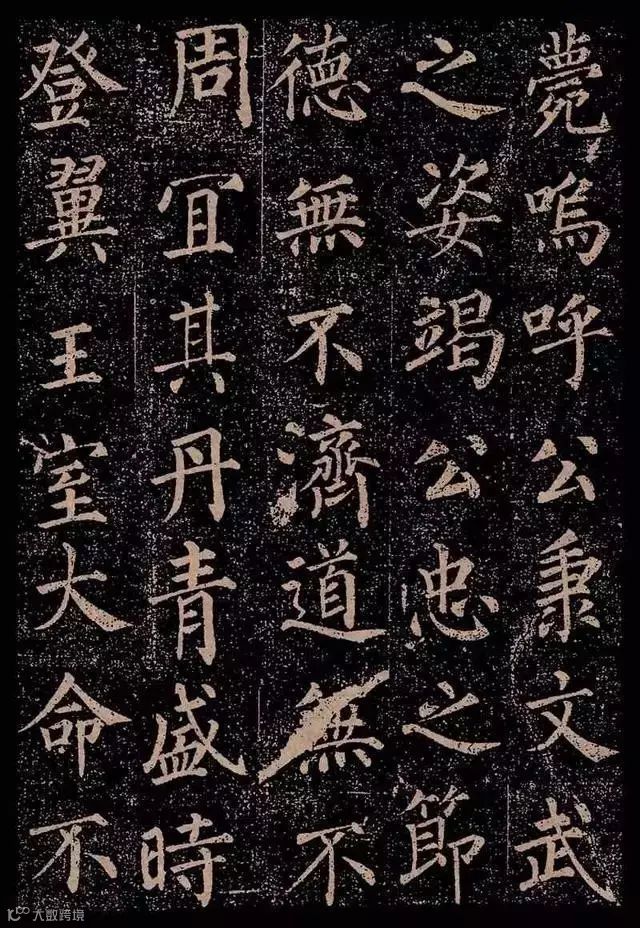 薨嗚呼公秉文武
之姿竭公忠之節
德無不濟道無不
周宜其丹青盛時
登翼王室大命不
大数跨境